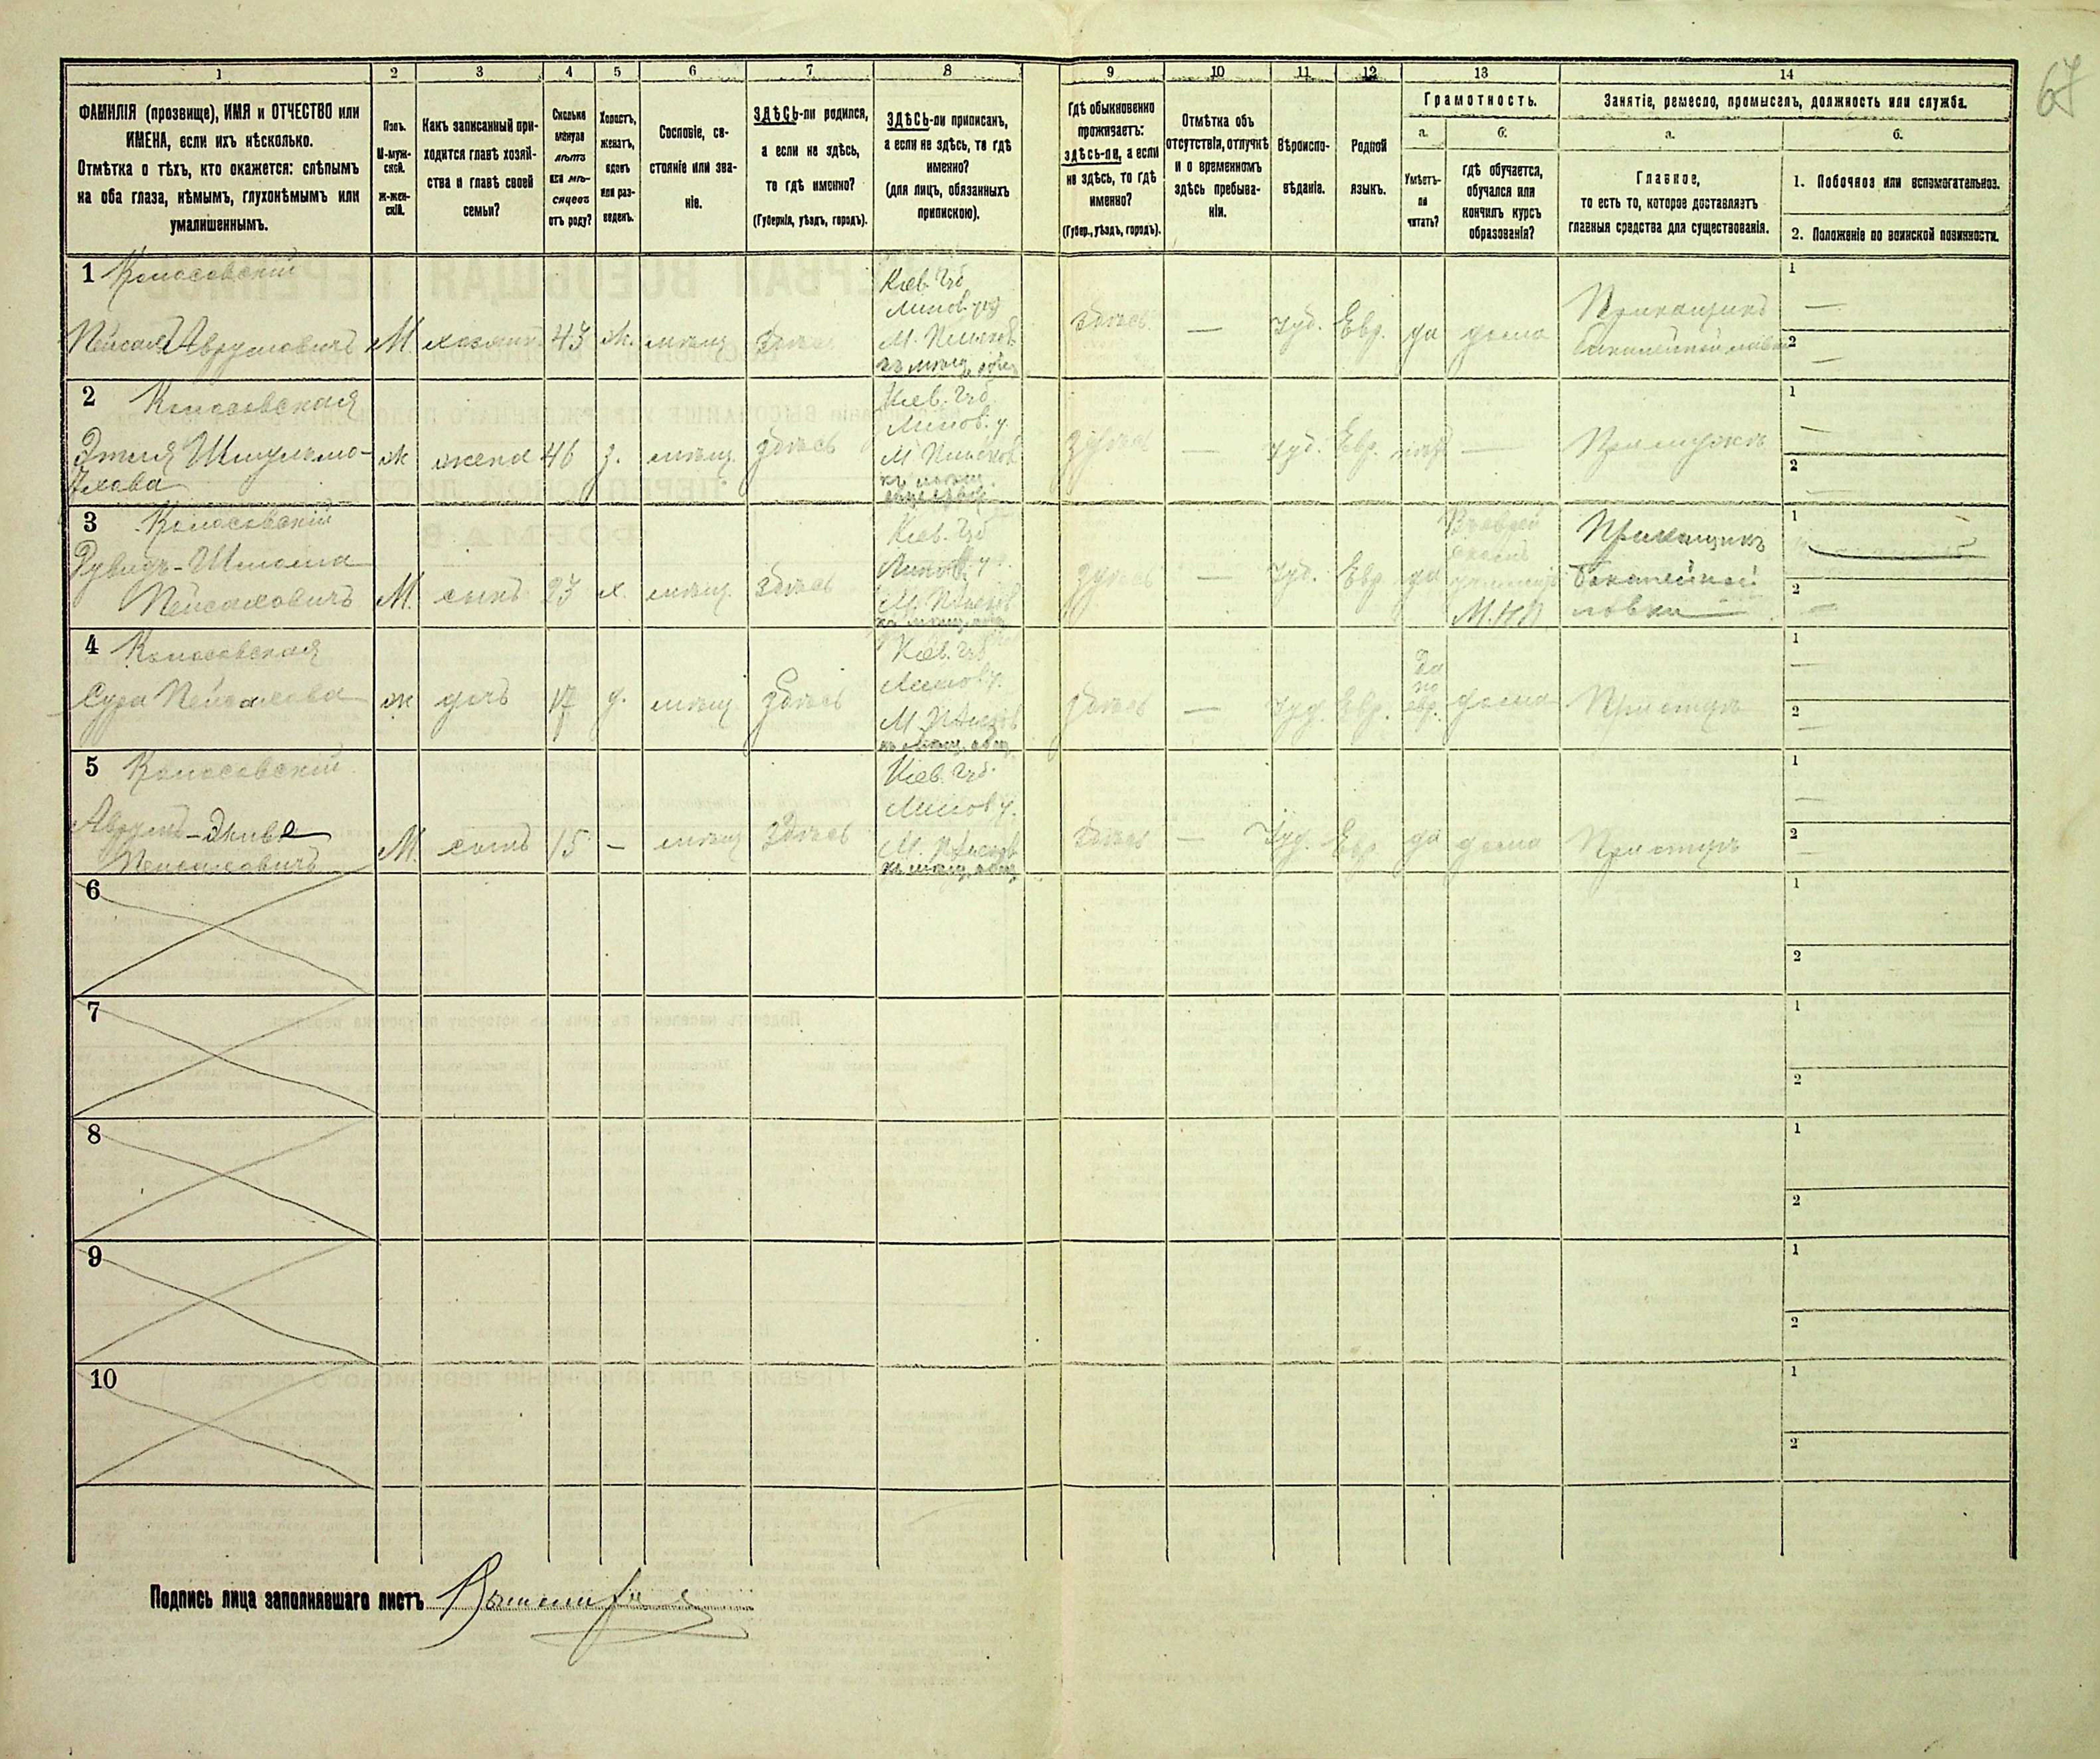 67
1 2 3 4 5 6 7 8 9 10 11 12 13 14
ФАМИЛІЯ (прозвище), ИМЯ и ОТЧЕСТВО или
ИМЕНА, если ихъ нѣсколько.
Отмѣтка о тѣхъ, кто окажется: слѣпымъ
на оба глаза, нѣмымъ, глухонѣмымъ или
умалишеннымъ.
Полъ.
М-муж-
ской.
ж-жен-
скій.
Какъ записанный при-
ходится главѣ хозяй-
ства и главѣ своей
семьи?
Сколько
минуло
лѣтъ
или мѣ-
сяцевъ
отъ роду?
Холостъ,
женатъ,
вдовъ
или раз-
веденъ.
Сословіе, со-
стояніе или зва-
ніе.
ЗДѢСЬ-ли родился,
а если не здѣсь,
то гдѣ именно?
(Губернія, уѣздъ, городъ).
ЗДѢСЬ-ли приписанъ,
а если не здѣсь, то гдѣ
именно?
(для лицъ, обязанныхъ
припискою).
Гдѣ обыкновенно
проживаетъ:
здѣсь-ли, а если
не здѣсь, то гдѣ
именно?
(Губер., уѣздъ, городъ).
Отмѣтка объ
отсутствіи, отлучкѣ
и о временномъ
здѣсь пребыва-
ніи.
Вѣроиспо-
вѣданіе.
Родной
языкъ.
Грамотность.
а.
Умѣетъ-
ли
читать?
б.
гдѣ обучается,
обучался или
кончилъ курсъ
образованія?
Занятіе, ремесло, промыселъ, должность или служба.
а.
Главное,
то есть то, которое доставляетъ
главныя средства для существованія.
б.
1. Побочное или вспомогательное.
2. Положеніе по воинской повинности.
1 Колосовскій
Пейсахъ Аврумовичъ
М. хозяинъ 43 ж. мѣщ. здѣсь
Кіев. Губ
Липов. уѣз
М.
къ мѣщ. общ
здѣсь — Іуд. Евр. да дома
Прикащикъ
бакалейной лавки
1 —
2 —
2 Колосовская
Этля Шмулъ-мо-
ж жена 46 з. мѣщ. здѣсь
Кіев. Губ.
Липов. у.
М
къ мѣщ.
здѣсь — Іуд. Евр. нѣтъ —
При мужѣ
1 —
2 —
3 Колосовскій
Рувидъ-Шлома
Пейсаховичъ
М. сынъ 23 х. мѣщ. здѣсь
Кіев. Губ
Липов. у.
М.
къ мѣщ. общ
здѣсь — Іуд. Евр да
М.Н.П
Прикащикъ
бакалейной
лавки
1
2 —
4 Колосовская
Сура Пейсахова
ж дочь 17 д. мѣщ. здѣсь
Кіев. Губ
Липов у.
М.
къ мѣщ. общ.
здѣсь — Іуд. Евр.
Да
по
евр.
дома
При отцѣ
1 —
2 —
5 Колосовскій
Аврумъ-Акива
Пейсаховичъ
М. сынъ 15 — мѣщ здѣсь
Кіев. Губ.
Липов у.
М.
къ мѣщ. общ.
здѣсь — Іуд. Евр да дома
При отцѣ
1 —
2 —
6
1
2
7
1
2
8
1
2
9
1
2
10
1
2
Подпись лица заполнявшаго листъ